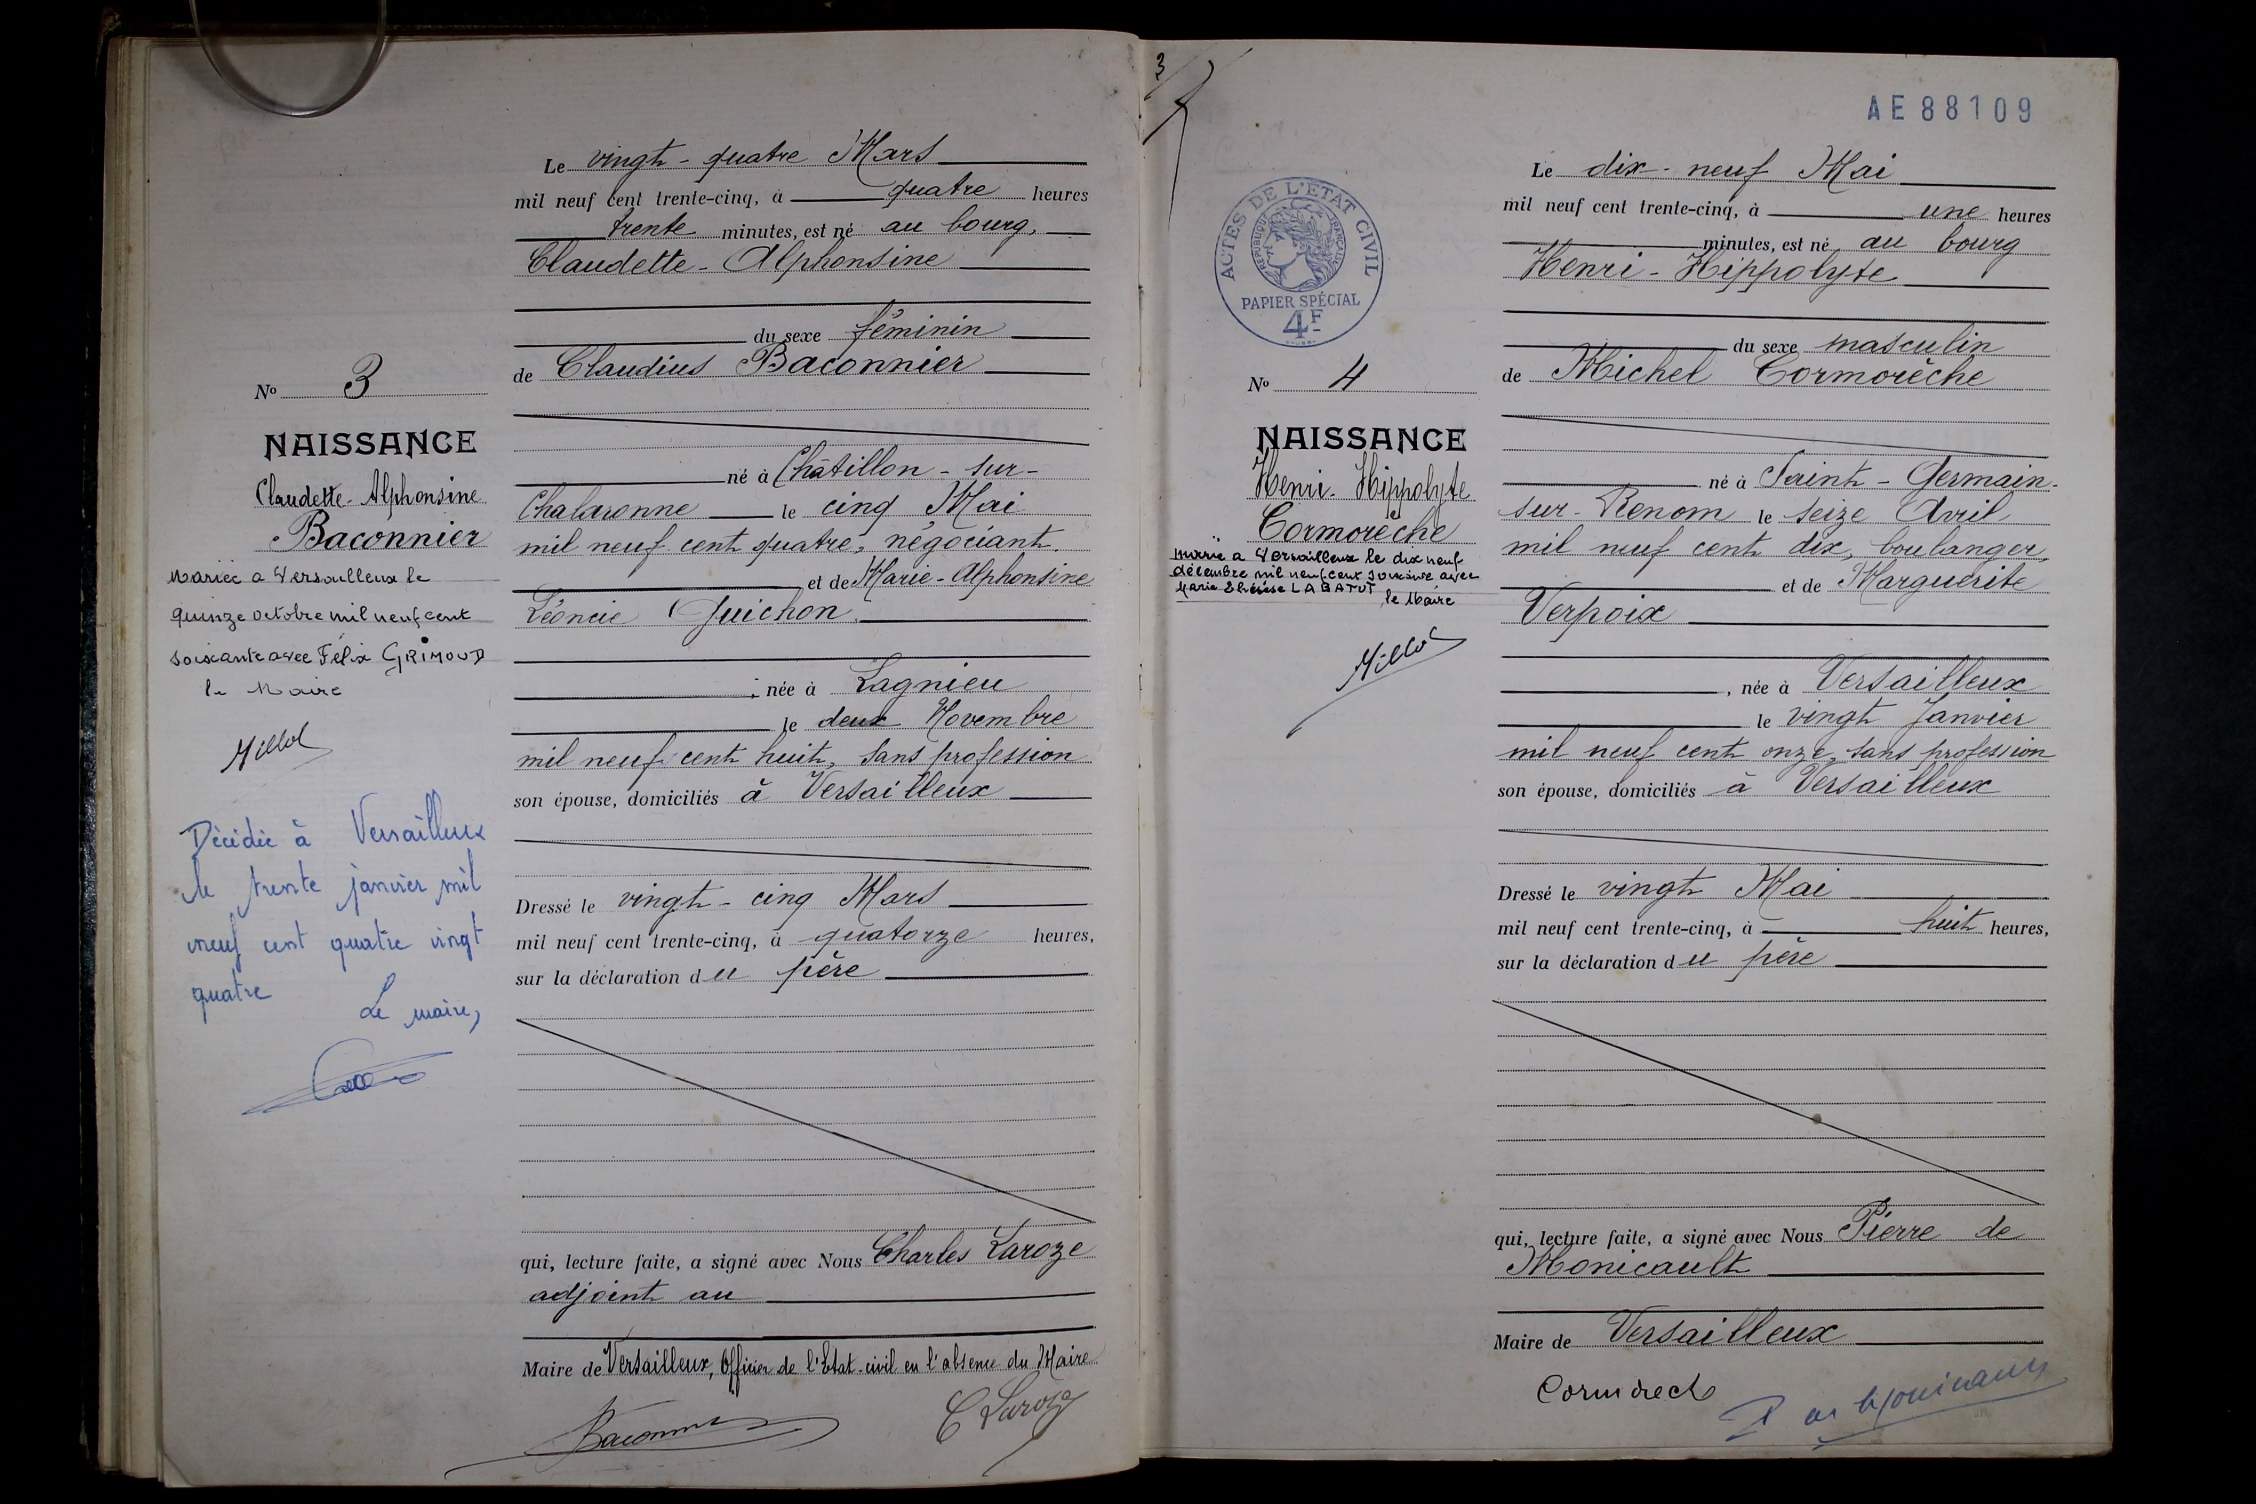 Le vingt-quatre Mars
mil neuf cent trente-cinq, à quatre heures
trente minutes, est né au bourg,
Claudette-Alphonsine
du sexe féminin
de Claudius Baconnier
né à Châtillon-sur-
Chalaronne le cinq Mai
mil neuf cent quatre, négociant.
et de Marie-Alphonsine
Léoncie Guichon.
née à Lagnieu
le deux Novembre
mil neuf cent huit, sans profession
son épouse, domiciliés à Versailleux
Dressé le vingt-cinq Mars
mil neuf cent trente-cinq, à quatorze heures,
sur la déclaration du père
qui, lecture faite, a signé avec Nous Charles Laroze
adjoint au
Maire de Versailleux, Officier de l'Etat-civil en l'absence du Maire
C Laroze
No 3
NAISSANCE
Claudette-Alphonsine
Baconnier
Mariée a Versailleux le
quinze octobre mil neuf cent
soixante avec Félix GRIMOUD
le Maire
Millet
Décédée à Versailleux
le trente janvier mil
neuf cent quatre vingt
quatre
Le maire,
3
AE88109
ACTES DE L'ETAT CIVIL
REPUBLIQUE FRANCAISE
PAPIER SPÉCIAL
4F
No 4
NAISSANCE
Henri-Hippolyte
Cormorèche
Marié a Versailleux le dix neuf
décembre mil neuf cent soixante avec
Marie Thérèse LABATUT
le Maire
Millet
Le dix-neuf Mai
mil neuf cent trente-cinq, à une heures
minutes, est né au bourg
Henri-Hippolyte
du sexe masculin
de Michel Cormorèche
né à Saint-Germain-
sur-Renom le seize Avril
mil neuf cent dix, boulanger,
et de Marguerite
Verpoix
, née à Versailleux
le vingt Janvier
mil neuf cent onze, sans profession
son épouse, domiciliés à Versailleux
Dressé le vingt Mai
mil neuf cent trente-cinq, à huit heures,
sur la déclaration du père
qui, lecture faite, a signé avec Nous Pierre de
Monicault
Maire de Versailleux